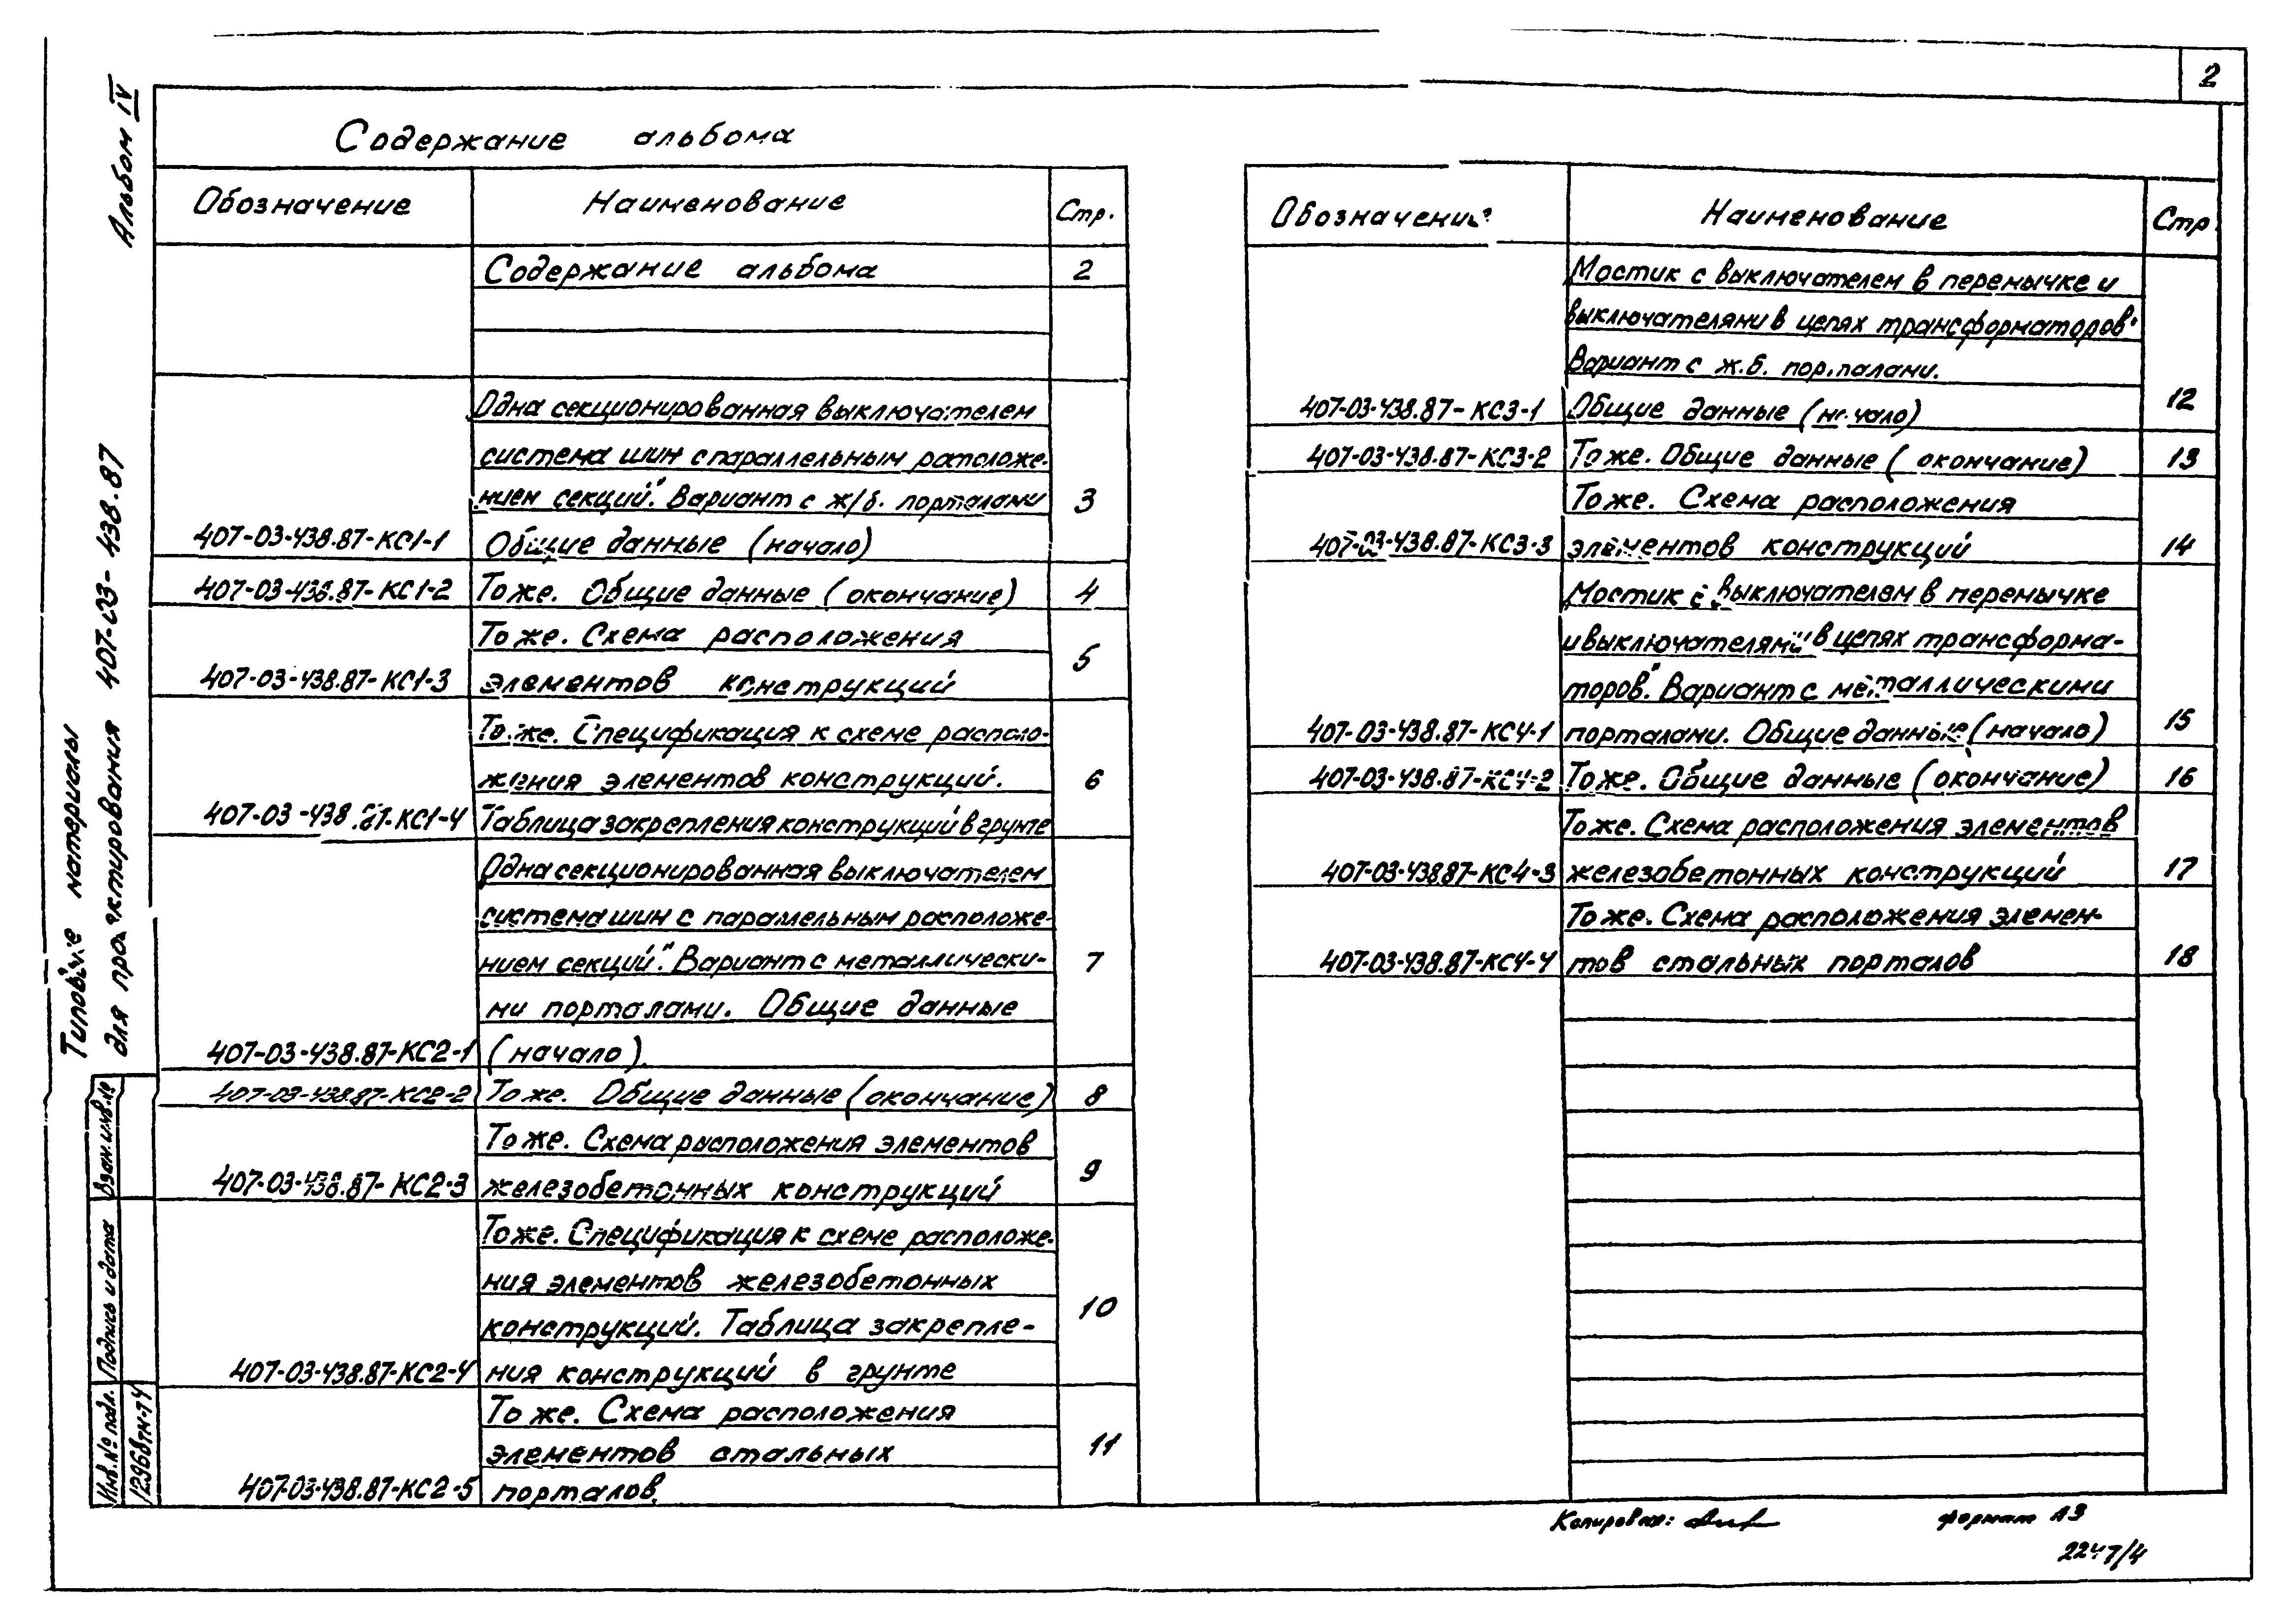 2
Альбом IV
Типовые материалы
для проектирования 407-03-438.87
Содержание альбома
Обозначение Наименование Стр.
Содержание альбома 2
Одна секционированная выключателем
система шин с параллельным расположе-
нием секций". Вариант с ж/б. порталами 3
407-03-438.87-КС1-1 Общие данные (начало)
407-03-438.87-КС1-2 То же. Общие данные (окончание) 4
То же. Схема расположения 5
407-03-438.87-КС1-3 элементов конструкций
То же. Спецификация к схеме располо-
жения элементов конструкций. 6
407-03-438.87-КС1-4 Таблица закрепления конструкций в грунте
Одна секционированная выключателем
система шин с параллельным расположе-
нием секций". Вариант с металлически- 7
ми порталами. Общие данные
407-03-438.87-КС2-1 (начало).
407-03-438.87-КС2-2 То же. Общие данные (окончание) 8
То же. Схема расположения элементов
407-03-438.87-КС2-3 железобетонных конструкций 9
То же. Спецификация к схеме расположе-
ния элементов железобетонных
конструкций. Таблица закрепле- 10
407-03-438.87-КС2-4 ния конструкций в грунте
То же. Схема расположения
элементов стальных 11
407-03-438.87-КС2-5 порталов.
Обозначение Наименование Стр.
Мостик с выключателем в перемычке и
выключателями в цепях трансформаторов"
Вариант с ж.б. порталами.
407-03-438.87-КС3-1 Общие данные (начало) 12
407-03-438.87-КС3-2 То же. Общие данные (окончание) 13
То же. Схема расположения
407-03-438.87-КС3-3 элементов конструкций 14
Мостик с выключателем в перемычке
и выключателями в цепях трансформа-
торов". Вариант с металлическими
407-03-438.87-КС4-1 порталами. Общие данные (начало) 15
407-03-438.87-КС4-2 То же. Общие данные (окончание) 16
То же. Схема расположения элементов
407-03-438.87-КС4-3 железобетонных конструкций 17
То же. Схема расположения элемен-
407-03-438.87-КС4-4 тов стальных порталов 18
Взам. инв. №
Подпись и дата
Инв. № подл.
12968тм-т4
Копировал:
формат А3
2247/4